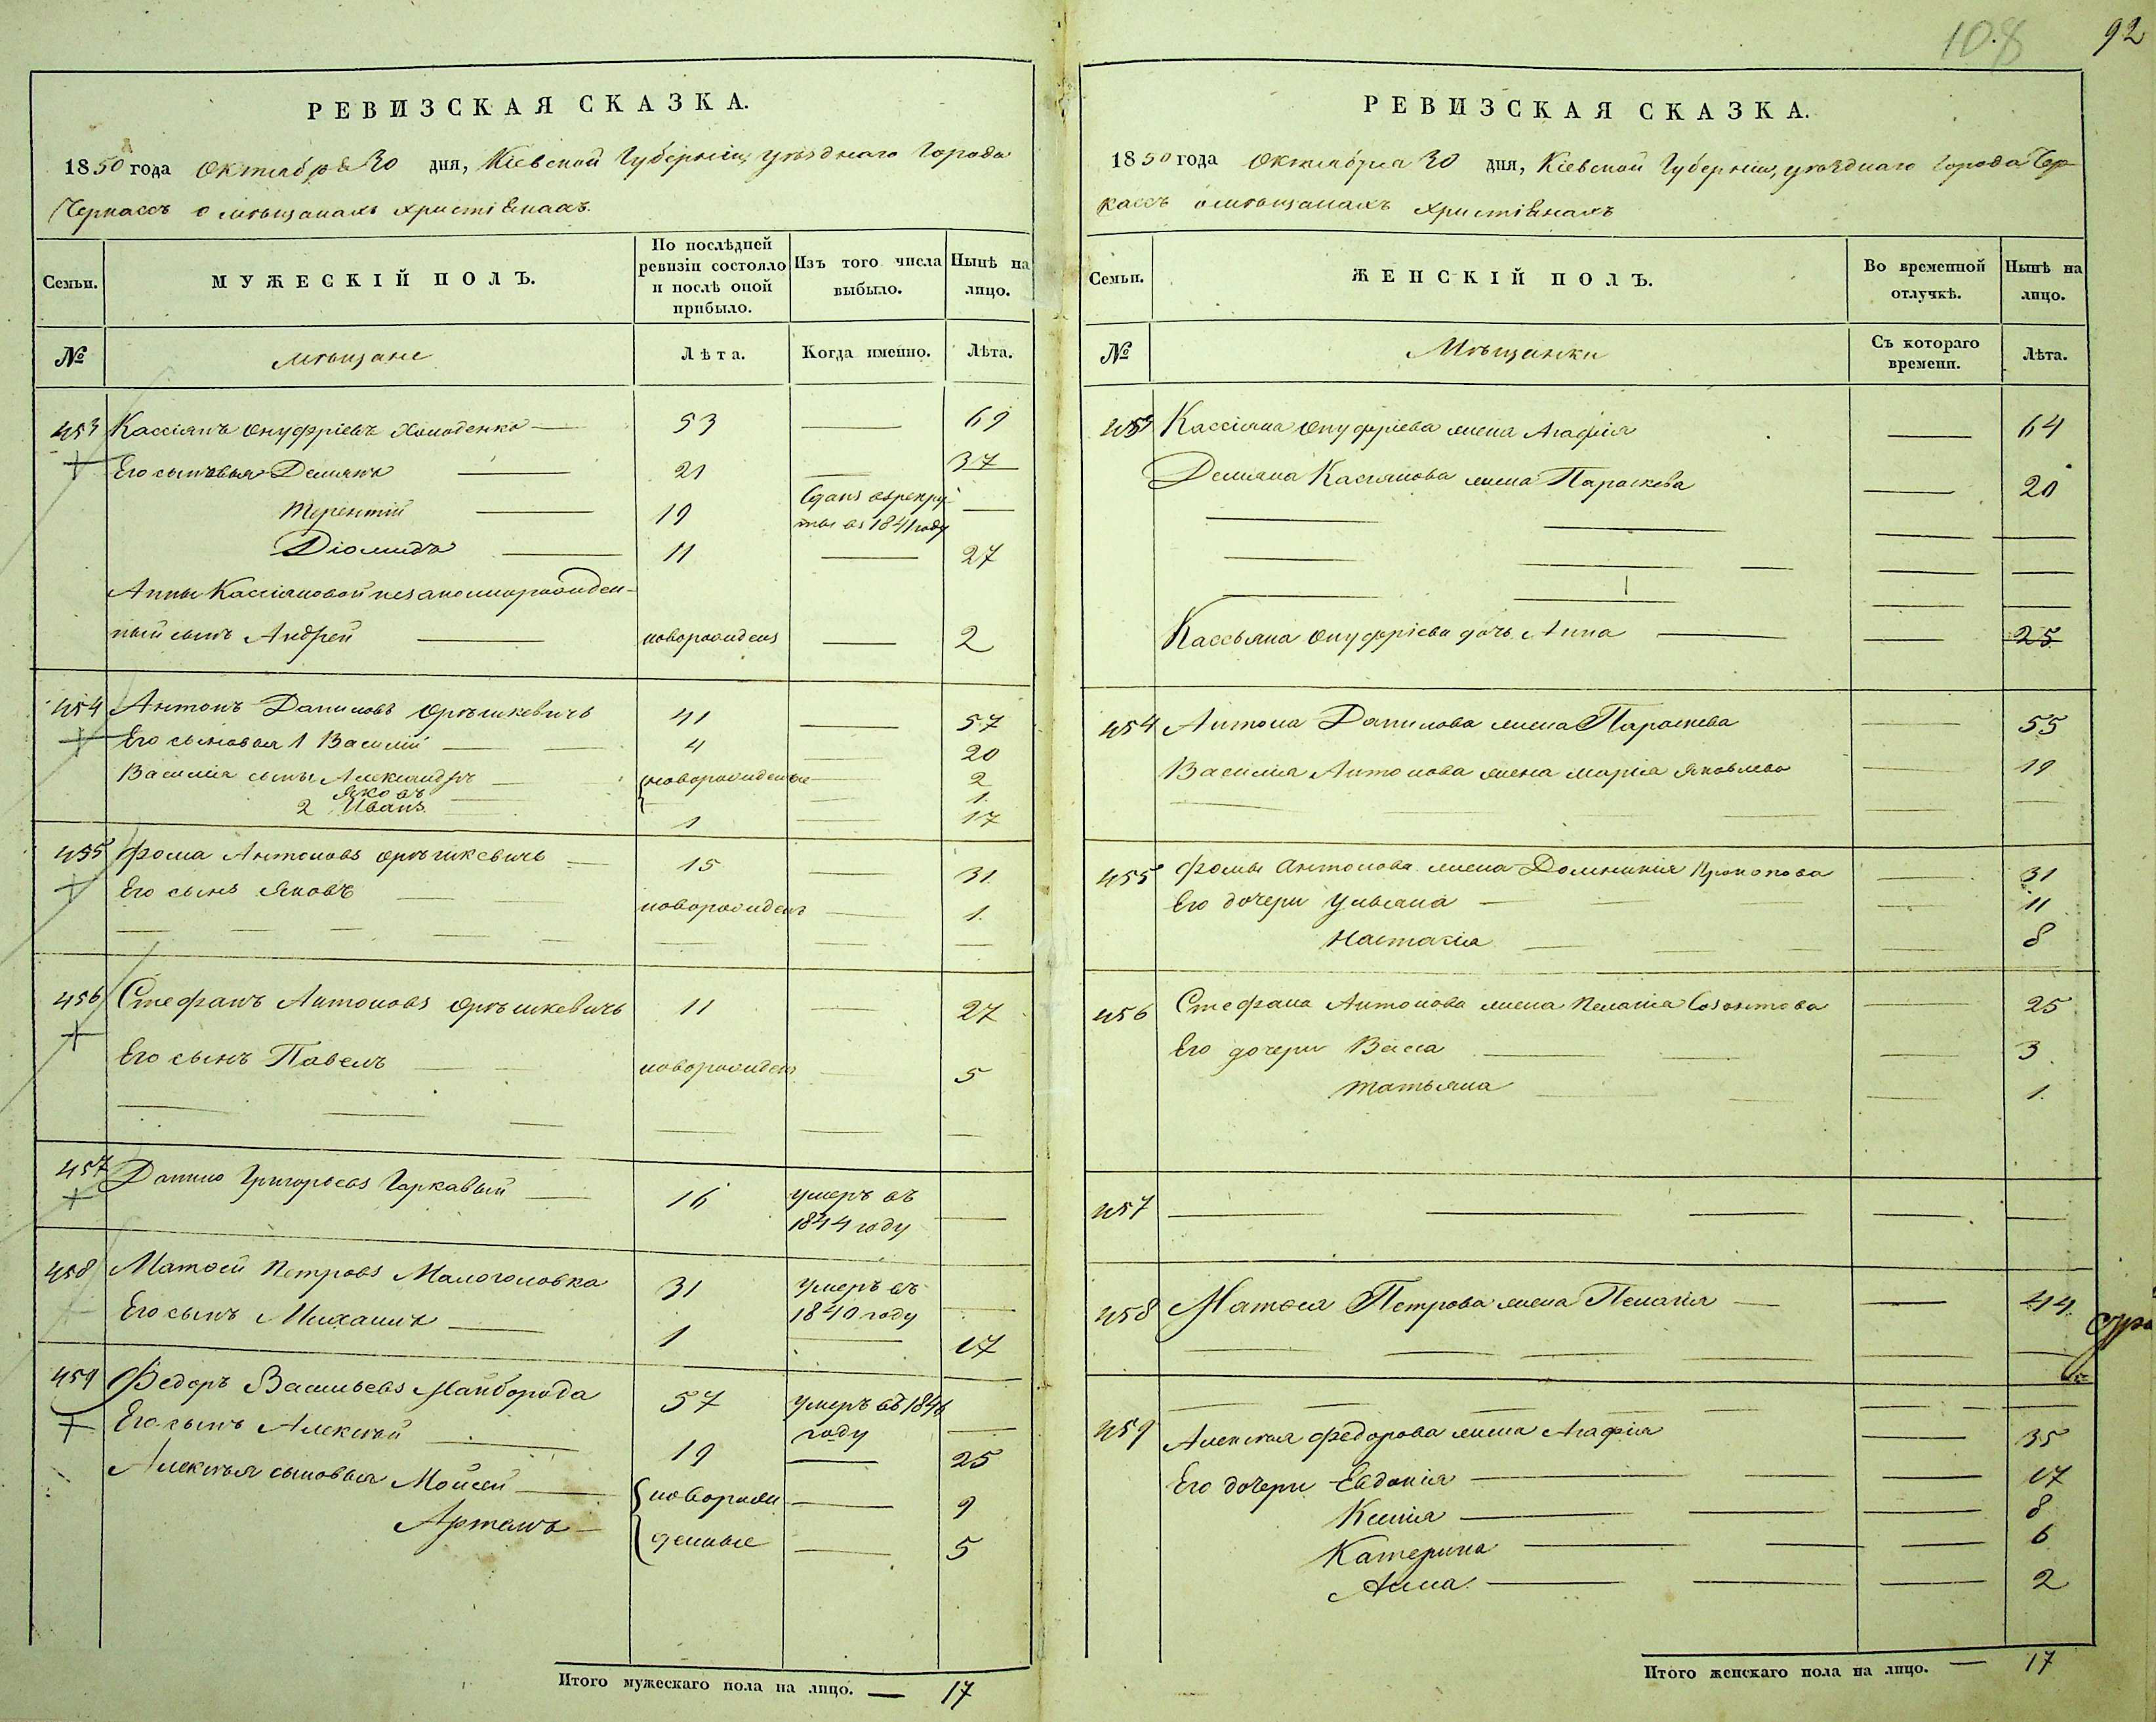 108 92
РЕВИЗСКАЯ СКАЗКА.
1850 года Октября 30 дня, Кіевской Губерніи, уѣзднаго Города
Черкассъ о мѣщанахъ христіянахъ.
Семьи. МУЖЕСКІЙ ПОЛЪ. По послѣдней ревизіи состояло и послѣ оной прибыло. Изъ того числа выбыло. Нынѣ на лицо.
№ мѣщане Лѣта. Когда именно. Лѣта.
453 Кассіянъ Онуфріевъ Холоденко — 53 — 69
Его сыновья Демянъ — 21 — 37
Терентій — 19 Сданъ въ рекруты въ 1841 году —
Діомидъ — 11 — 27
Анны Кассіяновой незаконнорожден-
ный сынъ Андрей — новорожденъ — 2
454 Антонъ Даниловъ Орѣшкевичъ 41 — 57
Его сыновья 1 Василій — 4 — 20
Василія сыны Александръ — новорожденные — 2
Яковъ — 1.
2 Иванъ — 1 — 17
455 Фома Антоновъ Орѣшкевичъ — 15 — 31.
Его сынъ Яковъ — новорожденъ — 1.
456 Стефанъ Антоновъ Орѣшкевичъ 11 — 27
Его сынъ Павелъ — новорожденъ — 5
457 Данило Григорьевъ Гаркавый — 16 умеръ въ 1844 году —
458 Матвей Петровъ Малоголовка 31 умеръ въ 1840 году —
Его сынъ Михаилъ — 1 — 17
459 Федоръ Васильевъ Майборода 57 умеръ въ 1846 году —
Его сынъ Алексѣй — 19 — 25
Алексѣя сыновья Мойсей — новорож- — 9
Артемъ — денные — 5
Итого мужескаго пола на лицо. — 17
РЕВИЗСКАЯ СКАЗКА.
1850 года Октября 30 дня, Кіевской Губерніи, уѣзднаго Города Чер-
кассъ о мѣщанахъ христіянахъ
Семьи. ЖЕНСКІЙ ПОЛЪ. Во временной отлучкѣ. Нынѣ на лицо.
№ Мѣщанки Съ котораго времени. Лѣта.
453 Кассіяна Онуфріева жена Агафія — 64
Демяна Касіянова жена Параскева — 20
Кассьяна Онуфріева дочь Анна — — 25
454 Антона Данилова жена Параскева — 55
Василія Антонова жена Марія Яковлева — 19
455 Фомы Антонова жена Домникія Прокопова — 31
Его дочери Ульяна — 11
Настасія — 8
456 Стефана Антонова жена Пелагія Созонтова — 25
Его дочери Васса — 3.
Татьяна — 1.
457 —
458 Матвея Петрова жена Пелагія — — 44.
459 Алексѣя Федорова жена Агафія — 35
Его дочери Евдокія — 17
Ксенія — 8
Катерина — 6
Анна. — 2
Итого женскаго пола на лицо. — 17